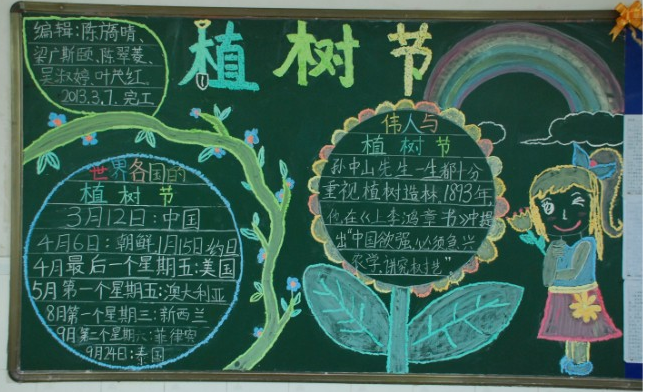 编辑:陈旖晴、
梁广斯颐、陈翠菱、
吴淑婷、叶茂红.
2013.3.7.完工
植树节
世界各国的
植树节
3月12日:中国
4月6日:朝鲜,1月15日约旦
4月最后一个星期五:美国
5月第一个星期五:澳大利亚
8月第一个星期三:新西兰
9月第二个星期六:菲律宾
9月24日:泰国
伟人与
植树节
孙中山先生一生都十分
重视植树造林.1893年,
他在《上李鸿章书》中提
出"中国欲强,必须急兴
农学,讲究